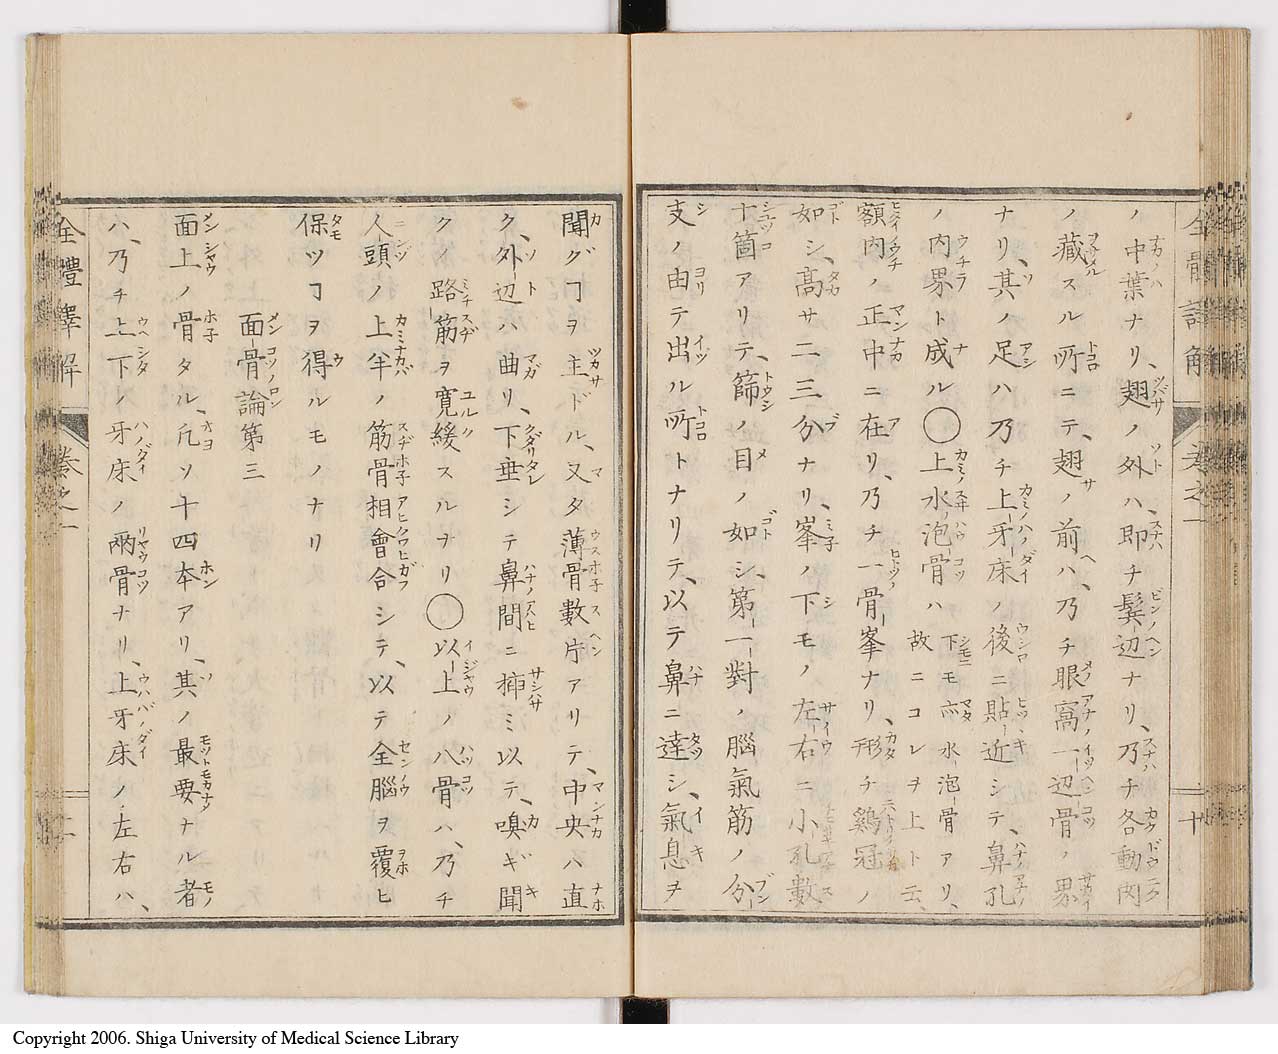 ノ中葉ナリ、翅ノ外ハ、即チ鬂辺ナリ、乃チ各動肉
ノ藏スル所ニテ、翅ノ前ハ、乃チ眼窩一辺骨ノ界
ナリ、其ノ足ハ乃チ上牙床ノ後ニ貼近シテ、鼻孔
ノ内界ト成ル〇上水泡骨ハ下モ亦水泡骨アリ、故ニコレヲ上ト云、
額内ノ正中ニ在リ、乃チ一骨峯ナリ、形チ鷄冠ノ
如シ、高サ二三分ナリ、峯ノ下モノ左右ニ小孔數
十箇アリテ、篩ノ目ノ如シ、第一對ノ腦氣筋ノ分
支ノ由テ出ル所トナリテ、以テ鼻ニ達シ、氣息ヲ
聞グヿヲ主ドル、又タ薄骨數片アリテ、中央ハ直
ク、外辺ハ曲リ、下垂シテ鼻間ニ挿ミ以テ、嗅ギ聞
クノ路筋ヲ寛緩スルナリ〇以上ノ八骨ハ、乃チ
人頭ノ上半ノ筋骨相會合シテ、以テ全腦ヲ覆ヒ
保ツヿヲ得ルモノナリ
面骨論第三
面上ノ骨タル、凡ソ十四本アリ、其ノ最要ナル者
ハ、乃チ上下ノ牙床ノ兩骨ナリ、上牙床ノ左右ハ、
全體譯解 卷之一
Copyright 2006. Shiga University of Medical Science Library